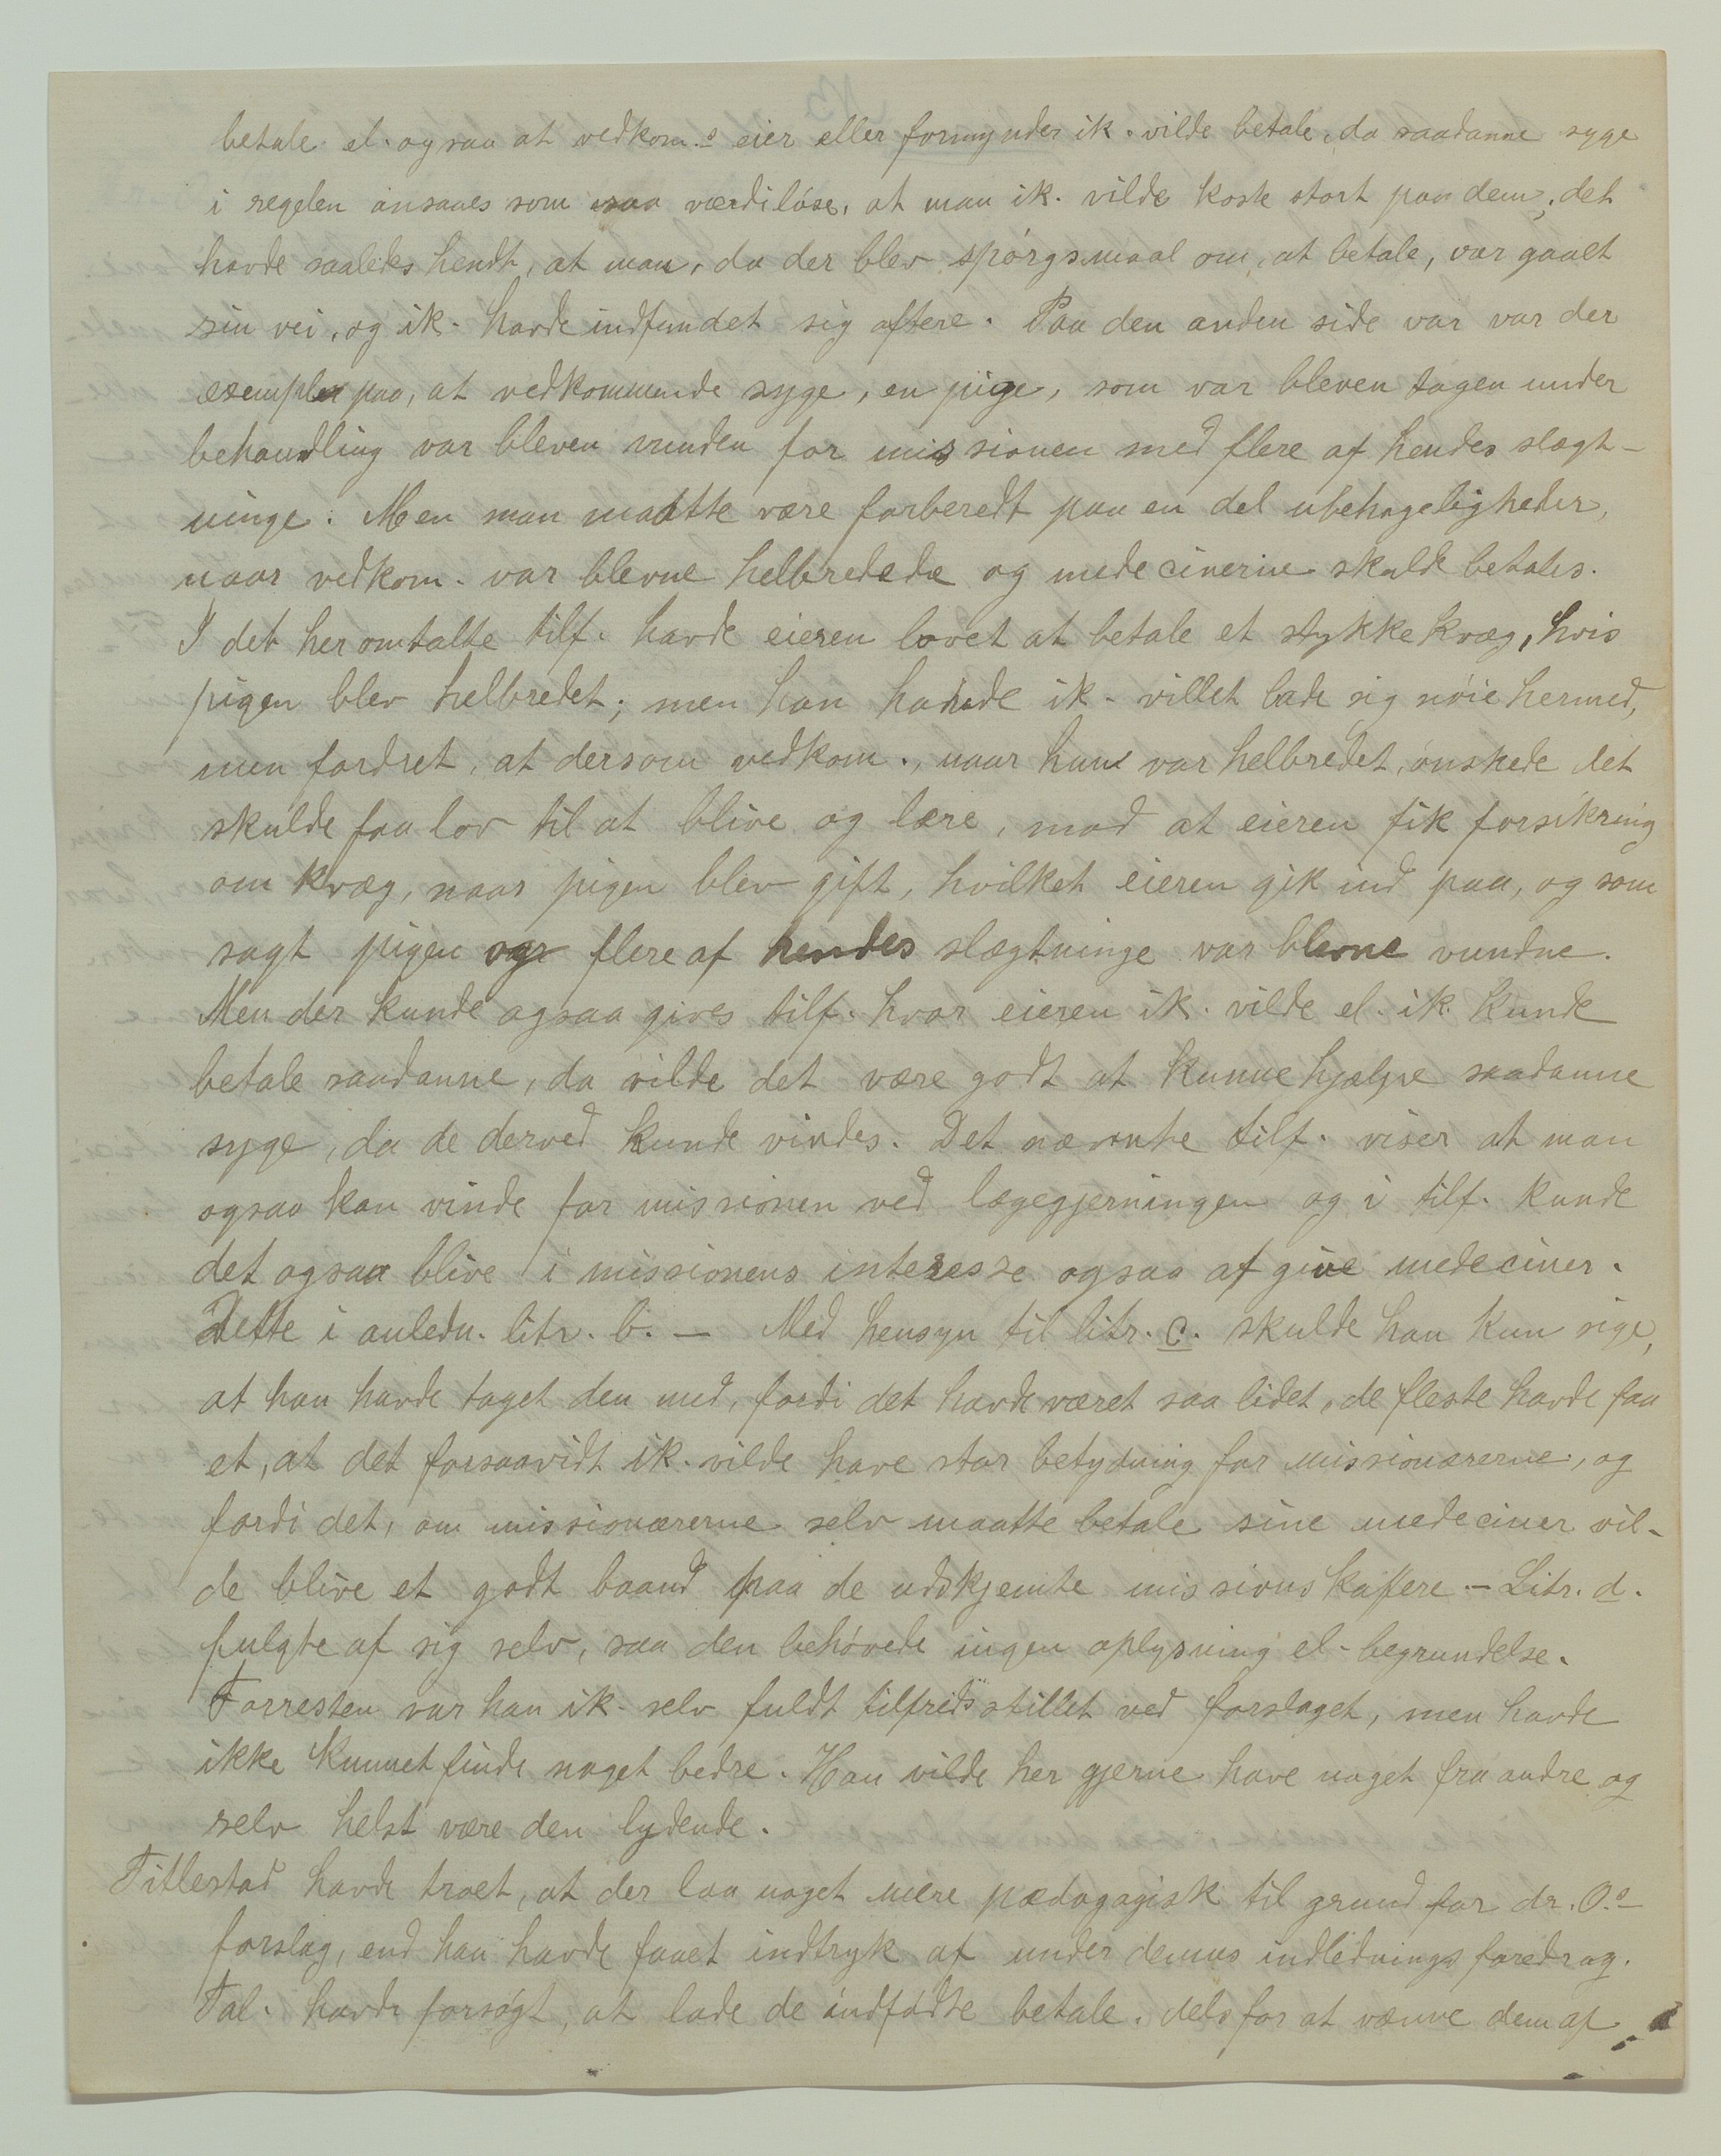 betale el. ogsaa at vedkom.s eier eller formynder ik. vilde betale, da saadanne syge
i regelen ansaaes som saa værdiløse, at man ik. vilde koste stort paa dem; det
havde saaledes hendt, at man, da der blev spørgsmaal om, at betale, var gaaet
sin vei, og ik. havde indfundet sig oftere. Paa den anden side var var der
exempler paa, at vedkommende syge, en pige, som var bleven tagen under
behandling var bleven vunden for missionen med flere af hendes slægt-
ninge. Men man maatte være forberedt paa en del ubehageligheder,
naar vedkom. var blevne helbredede og medecinerne skulde betales.
I det her omtalte tilf. havde eieren lovet at betale et stykke kvæg, hvis
pigen blev helbredet; men han havde ik. villet lade sig nøie hermed,
men fordret, at dersom vedkom., naar hun var helbredet, ønskede det
skulde faa lov til at blive og lære, mod at eieren fik forsikring
om kvæg, naar pigen blev gift, hvilket eieren gik ind paa, og som
sagt pigen og flere af hendes slægtninge var blevne vundne.
Men der kunde ogsaa gives tilf. hvor eieren ik. vilde el. ik. kunde
betale saadanne, da vilde det være godt at kunne hjælpe saadanne
syge, da de derved kunde vindes. Det nævnte tilf. viser at man
ogsaa kan vinde for missionen ved lægegjerningen og i tilf. kunde
det ogsaa blive i missionens interesse ogsaa at give medeciner.
Dette i anledn. litr. b. — Med hensyn til litr. c. skulde han kun sige,
at han havde taget den med, fordi det havde været saa lidet, de fleste havde faa
et, at det forsaavidt ik. vilde have stor betydning for missionærerne, og
fordi det, om missionærerne selv maatte betale sine medeciner vil-
de blive et godt baand paa de udskjemte missionskaffere. — Litr. d.
fulgte af sig selv, saa den behøvede ingen oplysning el. begrundelse.
Forresten var han ik. selv fuldt tilfredsstillet ved forslaget, men havde
ikke kunnet finde noget bedre. Han vilde her gjerne have noget fra andre og
selv helst være den lydende.
Titlestad havde troet, at der laa noget mere pædagogisk til grund for dr. O.s
forslag, end han havde faaet indtryk af under dennes indledningsforedrag.
Tal. havde forsøgt, at lade de indfødte betale, dels for at vænne dem af